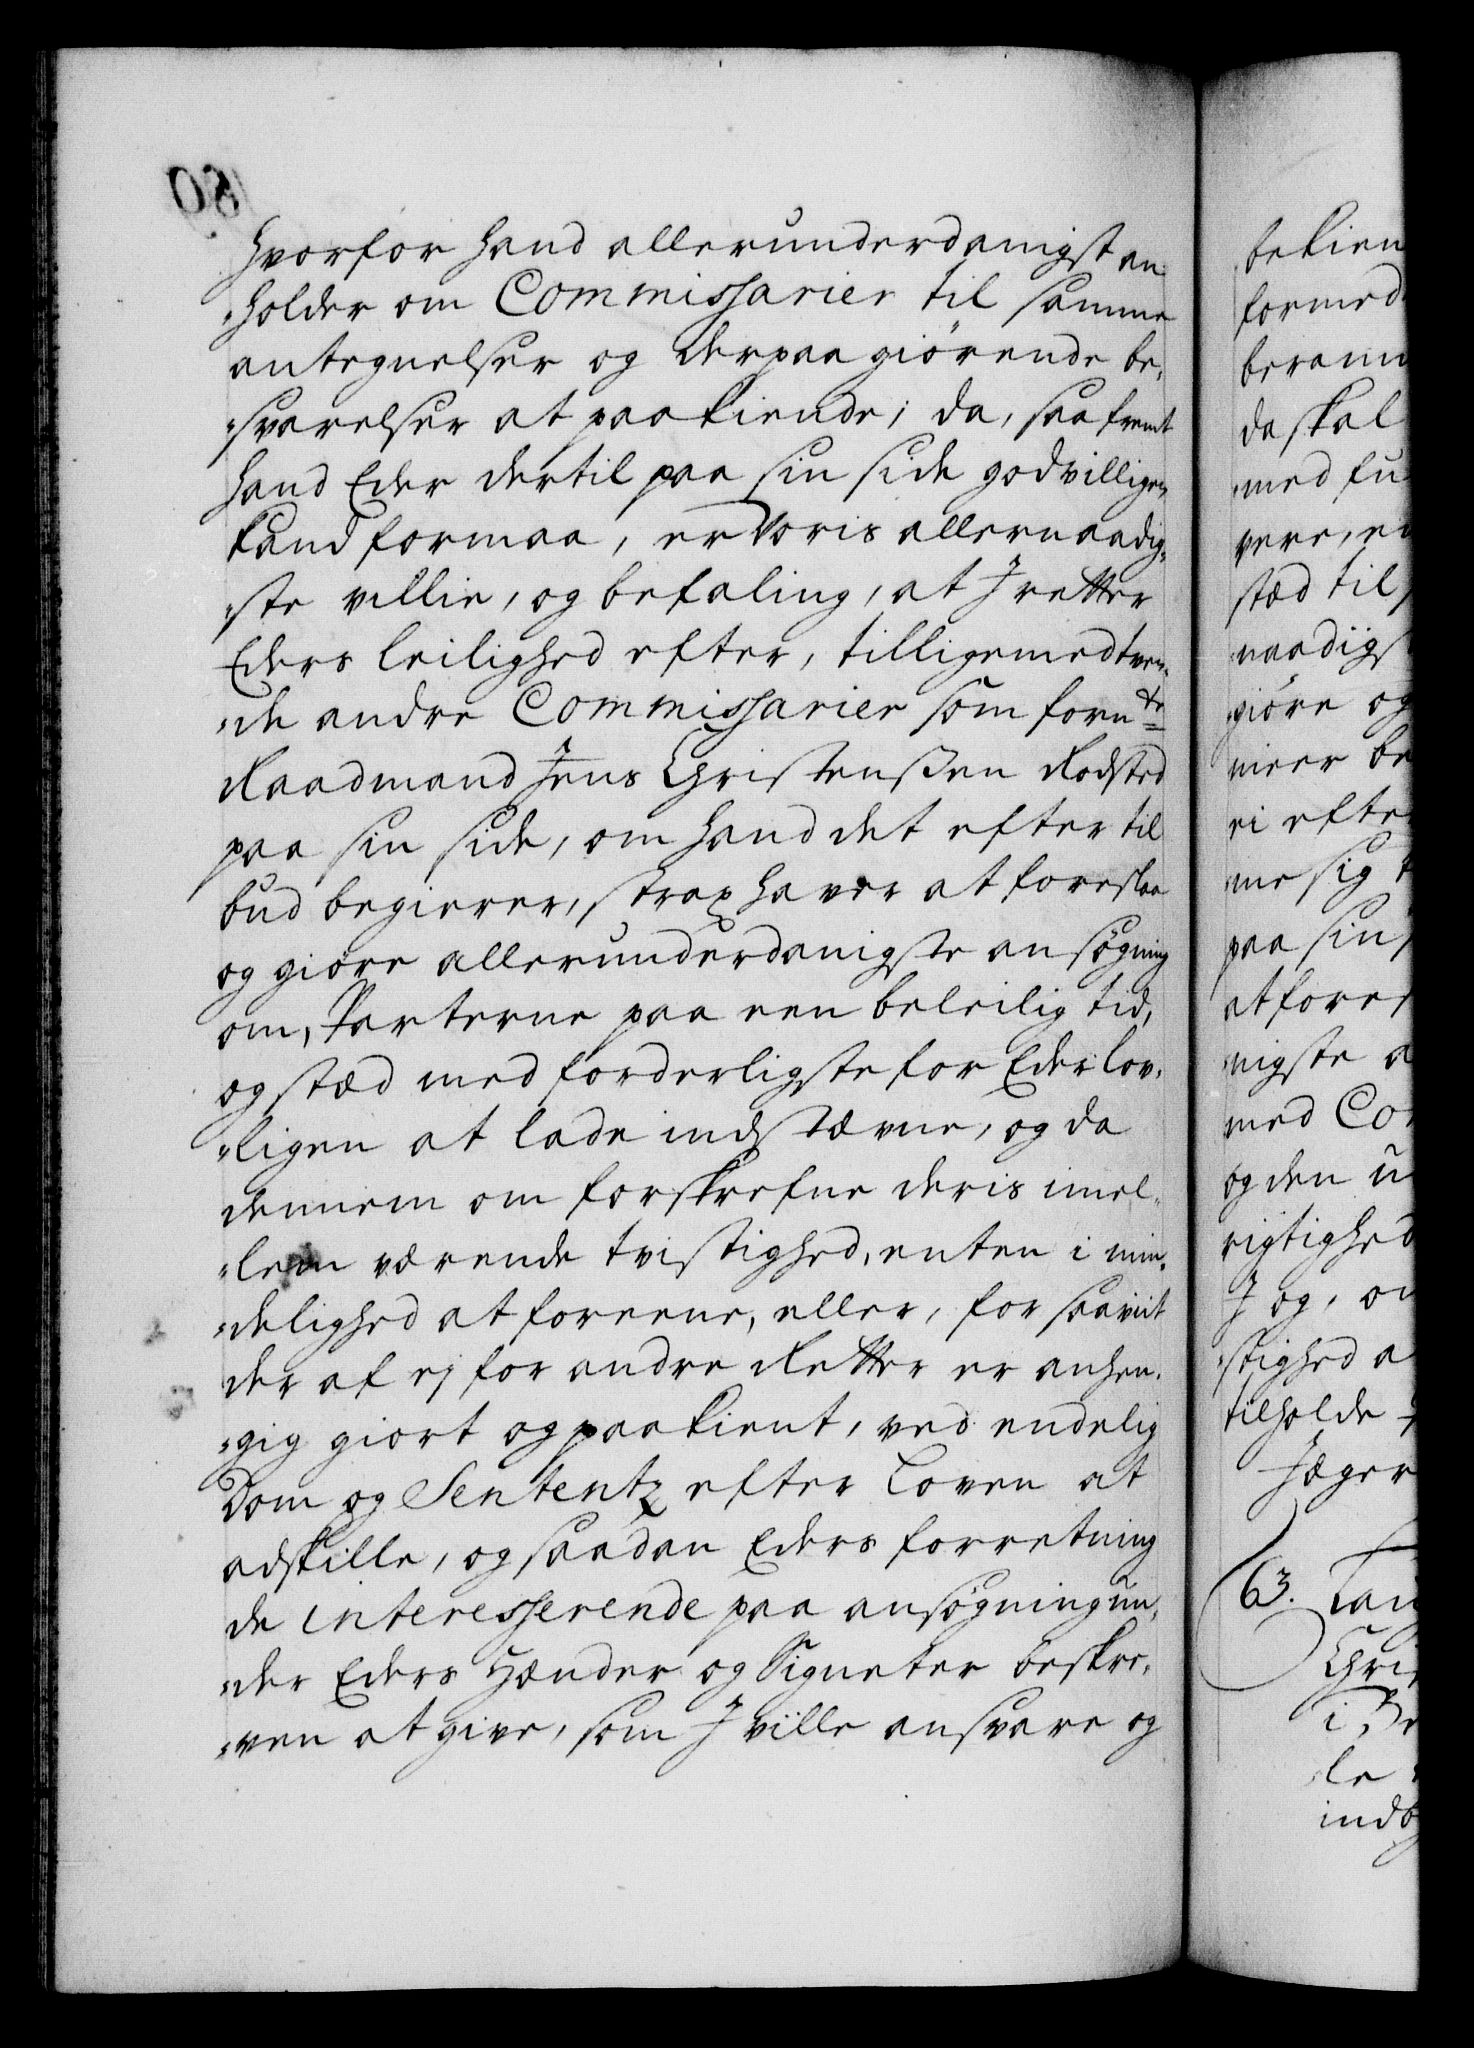 hvorfor hand allerunderdanigst an¬
„holder om Commissarier til samme
antegnelser og derpaa giørende be¬
„svarelser at paakiende; da, saafremt
hand Eder dertil paa sin side godvilligen
kand formaa, er Voris allernaadig¬
„ste villie, og befaling, at I retter
Eders leilighed efter, tilligemed tven¬
„de andre Commissarier som fornte
Raadmand Jens Christenßen Rodsted
paa sin side, om hand det efter til
bud begierer, strax haver at foreslaa
og giøre allerunderdanigste ansøgning
om, Parterne paa een beleilig tid,
og stæd med forderligste for Eder lov¬
„ligen at lade indstævne, og da
dennem om forskrefne deris imel¬
„lem værende tvistighed, enten i min¬
„delighed at foreene, eller, for saavit
der af ej for andre Retter er anhen¬
„gig giort og paakient, ved endelig
Dom og Sententz efter Loven at
adskille, og saadan Eders forretning
de interesserende paa ansøgning un¬
„der Eders Hænder og Signeter beskre¬
„ven at give, som I ville ansvare og
bekien
formed
beram
da skal
med fu
vere, en
stæd til
naadigs
giøre og
meer be
ei efte
me sig
paa sin
at fores
nigste a
med Co
og den u
rigtighed
I og, o
stighed a
tilholde
Jæger
63.
Chri
i
le
indb